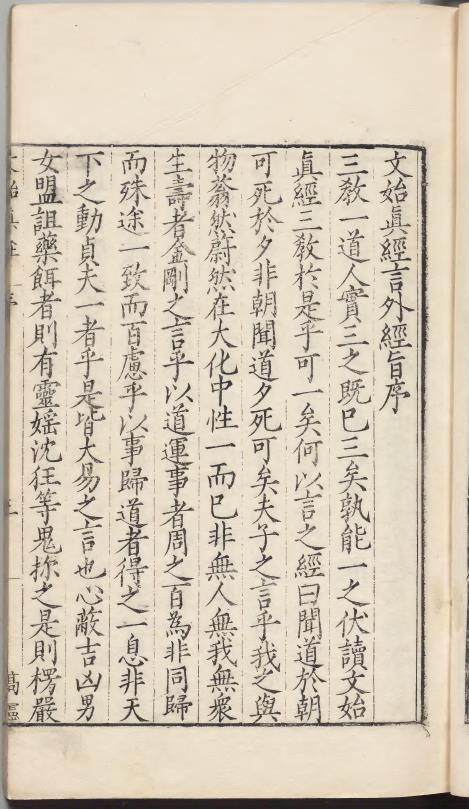 文始眞經言外經旨序
三教一道人實三之既已三矣孰能一之伏讀文始
眞經三教於是乎可一矣何以言之經曰聞道於朝
可死於夕非朝聞道夕死可矣夫子之言乎我之與
物蓊然蔚然在大化中性一而已非無人無我無衆
生壽者金剛之言乎以道運事者周之百為非同歸
而殊途一致而百慮乎以事歸道者得之一息非天
下之動貞夫一者乎是皆大易之言也心蔽吉凶男
女盟詛藥餌者則有靈媱沈狂等鬼捺之是則楞嚴